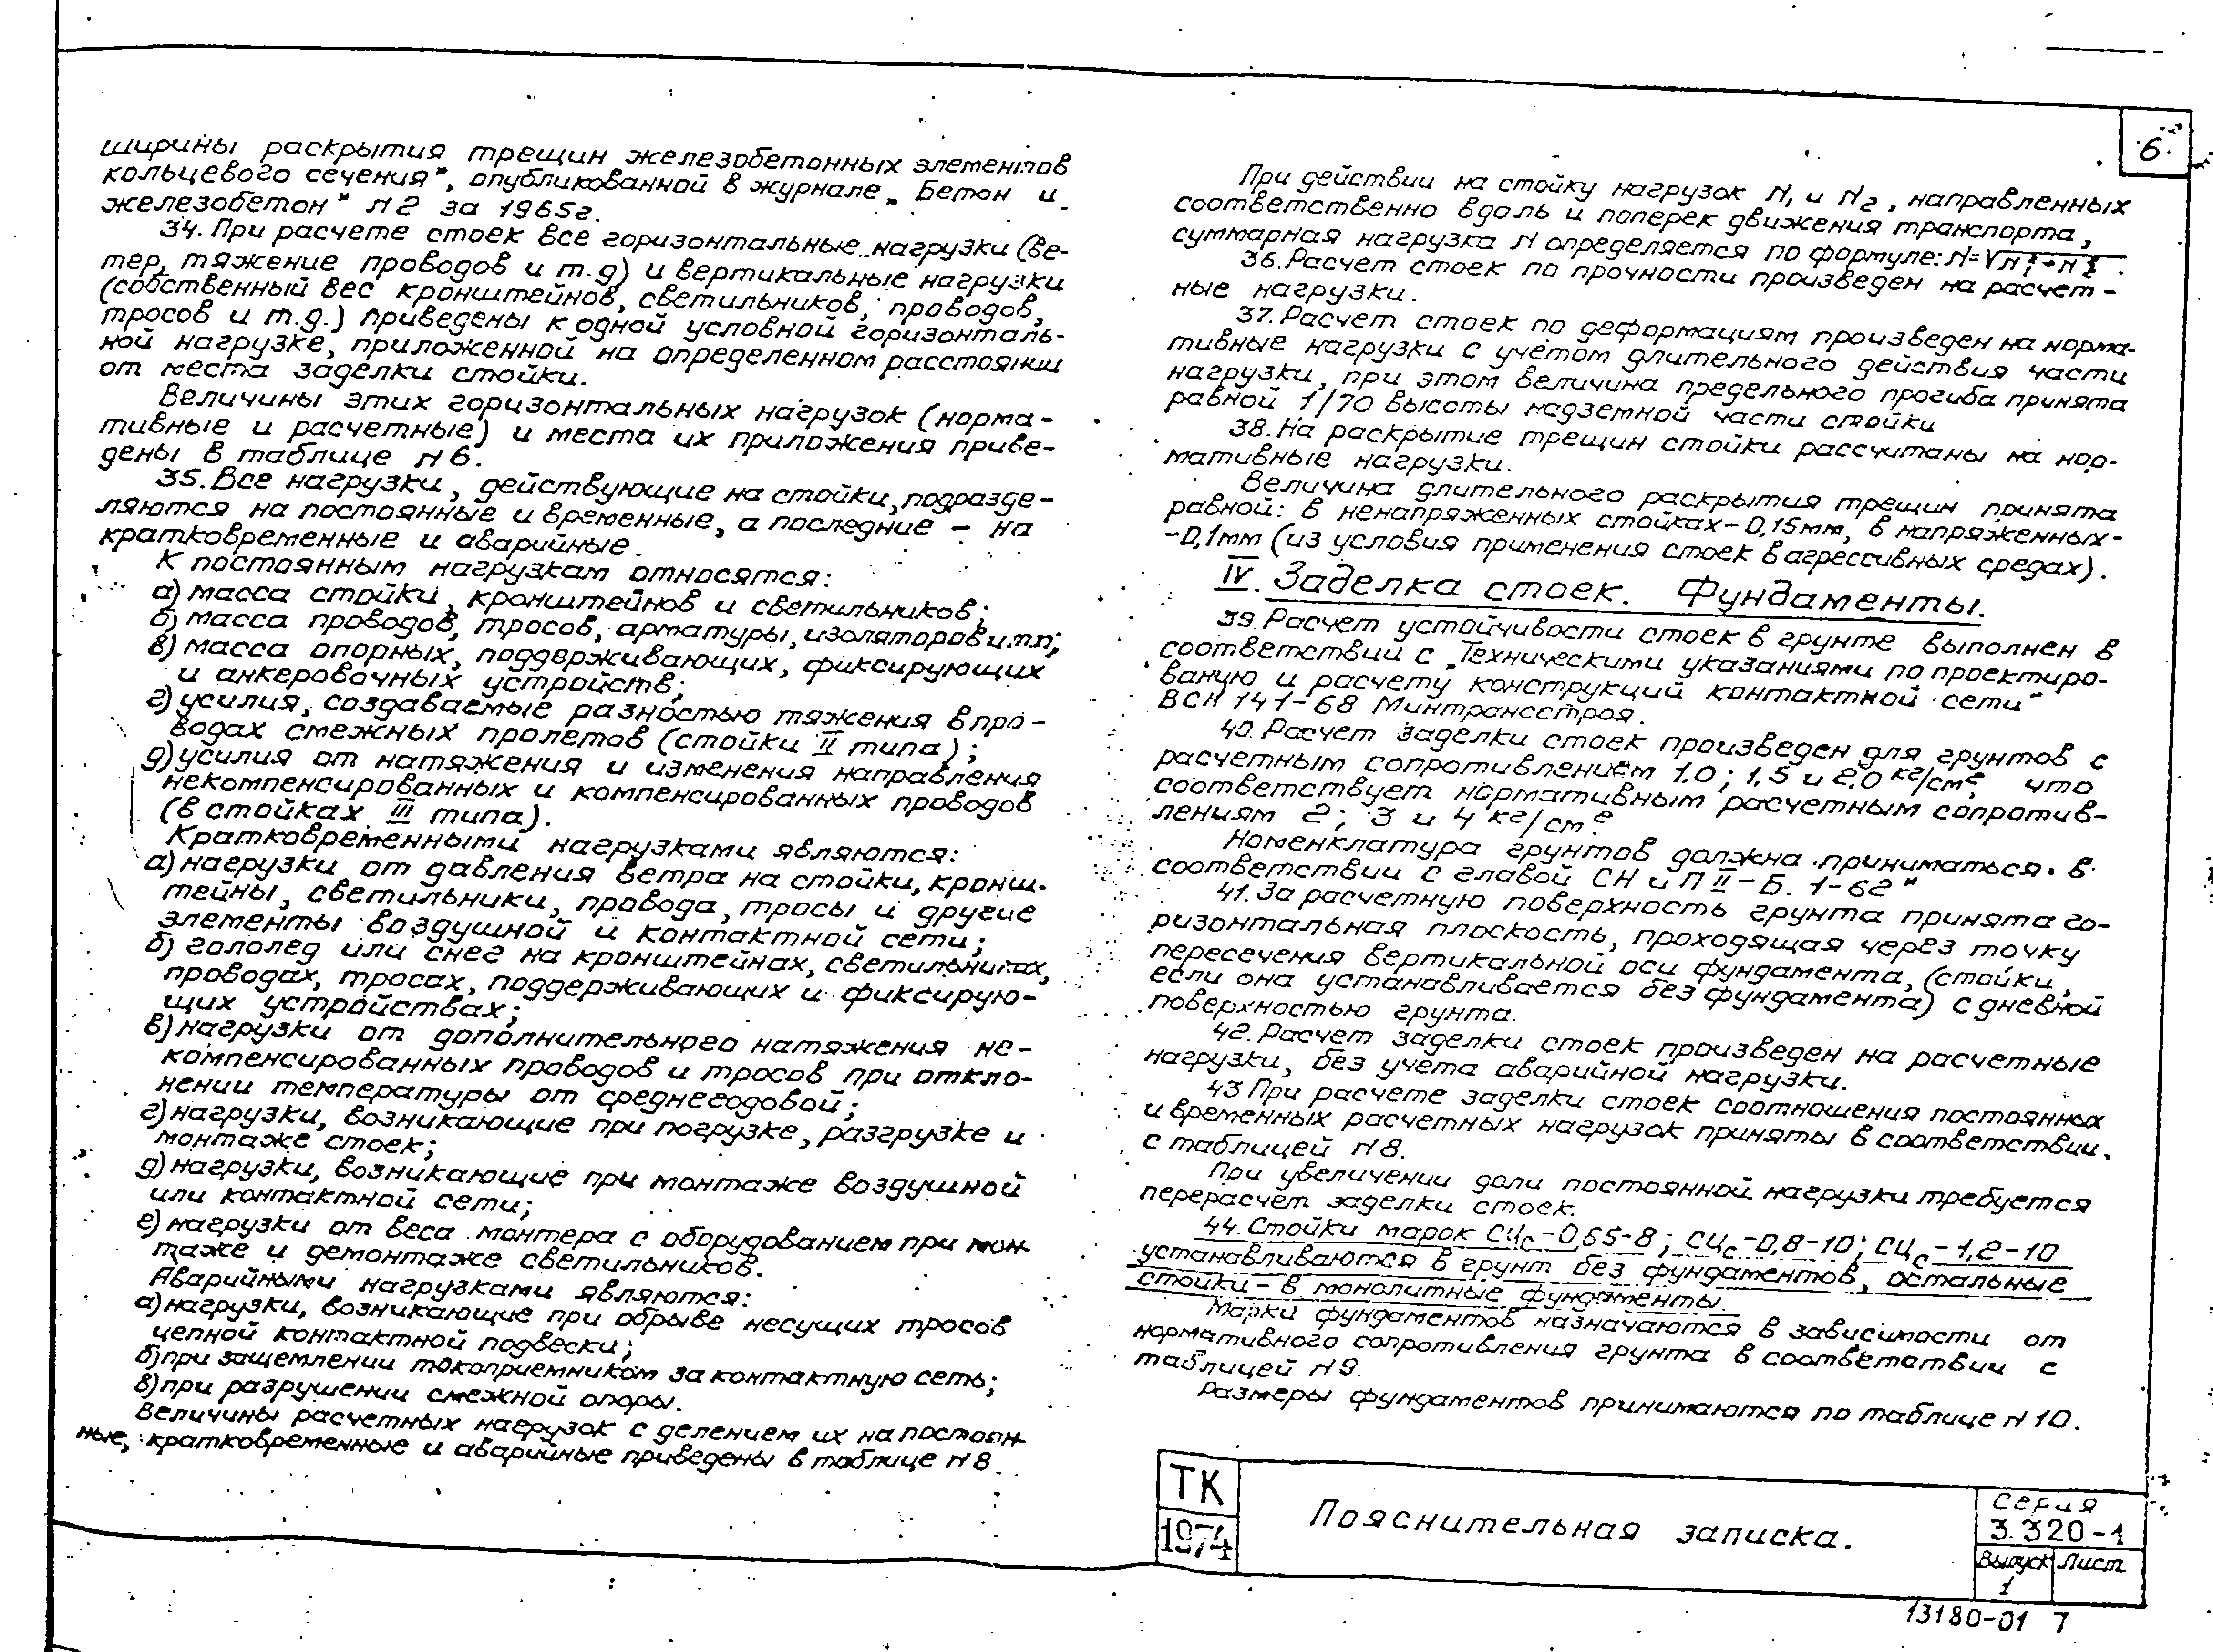 ширины раскрытия трещин железобетонных элементов
кольцевого сечения", опубликованной в журнале „Бетон и
железобетон" N2 за 1965г.
34. При расчете стоек все горизонтальные нагрузки (ве-
тер, тяжение проводов и т.д) и вертикальные нагрузки
(собственный вес кронштейнов, светильников, проводов,
тросов и т.д.) приведены к одной условной горизонталь-
ной нагрузке, приложенной на определенном расстоянии
от места заделки стойки.
Величины этих горизонтальных нагрузок (норма-
тивные и расчетные) и места их приложения приве-
дены в таблице N6.
35. Все нагрузки, действующие на стойки, подразде-
ляются на постоянные и временные, а последние - на
кратковременные и аварийные.
К постоянным нагрузкам относятся:
а) масса стойки, кронштейнов и светильников;
б) масса проводов, тросов, арматуры, изоляторов и т.п;
в) масса опорных, поддерживающих, фиксирующих
и анкеровочных устройств;
г) усилия, создаваемые разностью тяжения в про-
водах смежных пролетов (стойки II типа);
д) усилия от натяжения и изменения направления
некомпенсированных и компенсированных проводов
(в стойках III типа).
Кратковременными нагрузками являются:
а) нагрузки от давления ветра на стойки, кронш-
тейны, светильники, провода, тросы и другие
элементы воздушной и контактной сети;
б) гололед или снег на кронштейнах, светильниках,
проводах, тросах, поддерживающих и фиксирую-
щих устройствах;
в) нагрузки от дополнительного натяжения не-
компенсированных проводов и тросов при откло-
нении температуры от среднегодовой;
г) нагрузки, возникающие при погрузке, разгрузке и
монтаже стоек;
д) нагрузки, возникающие при монтаже воздушной
или контактной сети;
е) нагрузки от веса монтера с оборудованием при мон-
таже и демонтаже светильников.
Аварийными нагрузками являются:
а) нагрузки, возникающие при обрыве несущих тросов
цепной контактной подвески;
б) при защемлении токоприемником за контактную сеть;
в) при разрушении смежной опоры.
Величины расчетных нагрузок с делением их на постоян-
ные, кратковременные и аварийные приведены в таблице N8
6
При действии на стойку нагрузок N₁ и N₂, направленных
соответственно вдоль и поперек движения транспорта,
суммарная нагрузка N определяется по формуле: N=√N₁²+N₂².
36. Расчет стоек по прочности произведен на расчет-
ные нагрузки.
37. Расчет стоек по деформациям произведен на норма-
тивные нагрузки с учетом длительного действия части
нагрузки, при этом величина предельного прогиба принята
равной 1/70 высоты надземной части стойки
38. На раскрытие трещин стойки рассчитаны на нор-
мативные нагрузки.
Величина длительного раскрытия трещин принята
равной: в ненапряженных стойках - 0,15мм, в напряженных -
- 0,1мм (из условия применения стоек в агрессивных средах).
IV. Заделка стоек. Фундаменты.
39. Расчет устойчивости стоек в грунте выполнен в
соответствии с „Техническими указаниями по проектиро-
ванию и расчету конструкций контактной сети"
ВСН 141-68 Минтрансстроя.
40. Расчет заделки стоек произведен для грунтов с
расчетным сопротивлением 1,0; 1,5 и 2,0 кг/см², что
соответствует нормативным расчетным сопротив-
лениям 2; 3 и 4 кг/см².
Номенклатура грунтов должна приниматься в
соответствии с главой СН и П II-Б. 1-62"
41. За расчетную поверхность грунта принята го-
ризонтальная плоскость, проходящая через точку
пересечения вертикальной оси фундамента, (стойки,
если она устанавливается без фундамента) с дневной
поверхностью грунта.
42. Расчет заделки стоек произведен на расчетные
нагрузки, без учета аварийной нагрузки.
43 При расчете заделки стоек соотношения постоянных
и временных расчетных нагрузок приняты в соответствии
с таблицей N8.
При увеличении доли постоянной нагрузки требуется
перерасчет заделки стоек.
44. Стойки марок СЦс-0,65-8; СЦс-0,8-10; СЦс-1,2-10
устанавливаются в грунт без фундаментов, остальные
стойки - в монолитные фундаменты.
Марки фундаментов назначаются в зависимости от
нормативного сопротивления грунта в соответствии с
таблицей N9.
Размеры фундаментов принимаются по таблице N10.
ТК
1974
Пояснительная записка.
Серия
3.320-1
Выпуск
1
Лист
13180-01 7